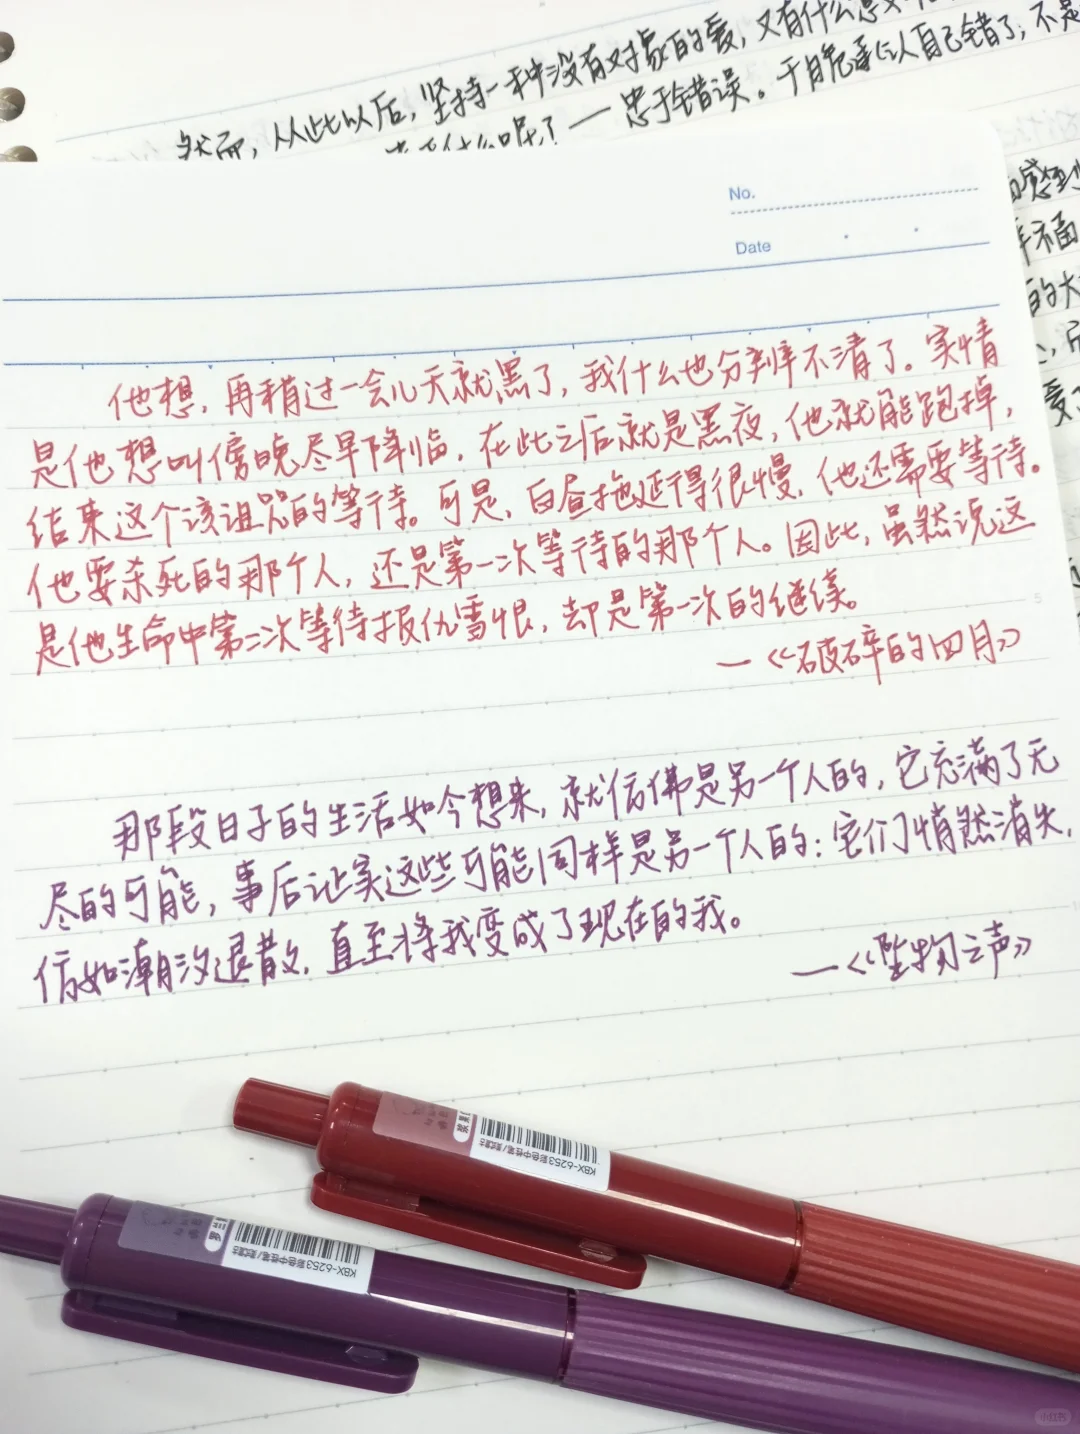 然而,从此以后,坚持一种没有对象的爱,又有什么意义
什么呢?——忠于错误。于自危再认自己错了,不是
感到
幸福
的大
No.
Date
他想,再稍过一会儿天就黑了,我什么也分辨不清了。实情
是他想叫傍晚尽早降临,在此之后就是黑夜,他就能跑掉,
结束这个该诅咒的等待。可是,白昼拖延得很慢,他还需要等待。
他要杀死的那个人,还是第一次等待的那个人。因此,虽然说这
是他生命中第二次等待报仇雪恨,却是第一次的继续。
5
—《破碎的四月》
那段日子的生活如今想来,就仿佛是另一个人的,它充满了无
尽的可能,事后让实这些可能同样是另一个人的:它们悄然消失,
仿如潮汐退散,直至将我变成了现在的我。
—《坠物之声》
KBX-6253彩色中性笔/
KBX-6253彩色中性笔/
小红书